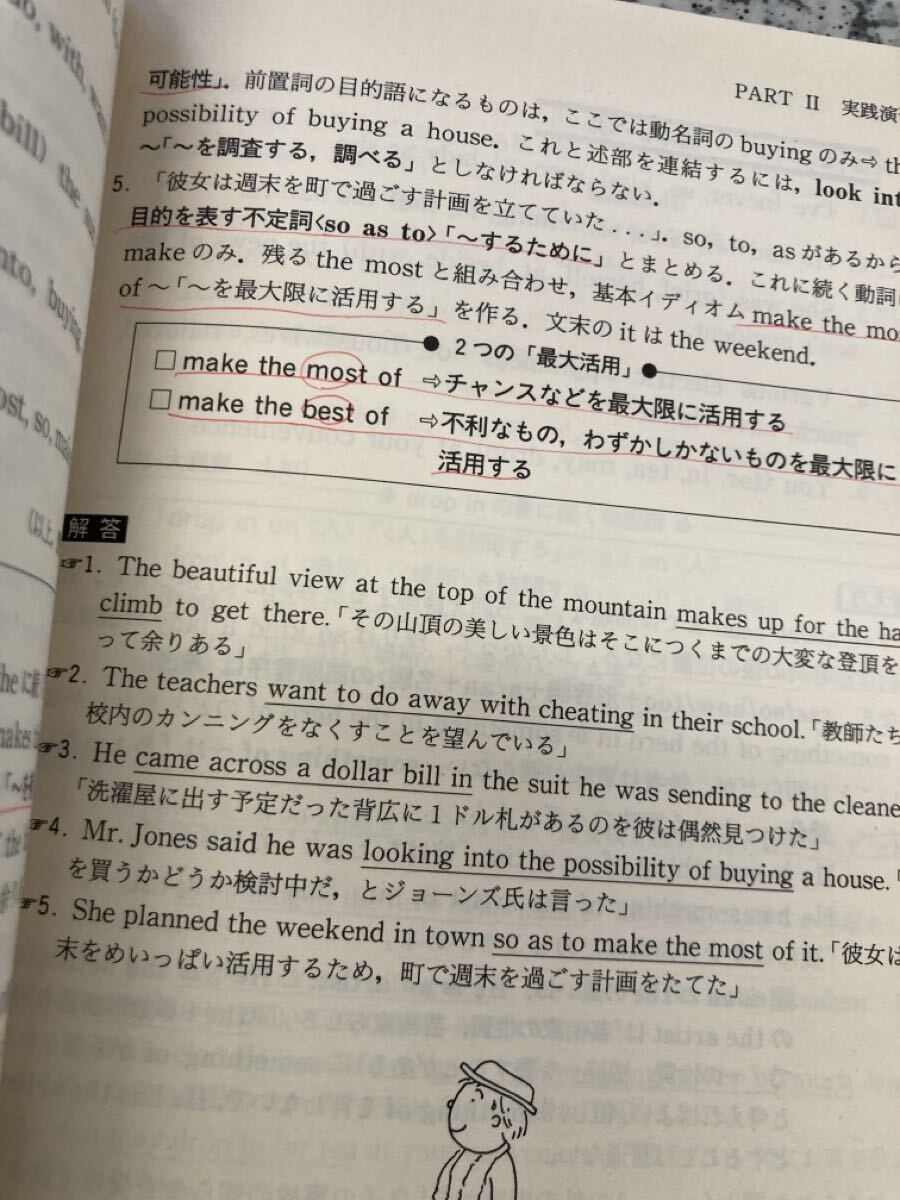 PART II 実践演
可能性」. 前置詞の目的語になるものは, ここでは動名詞の buying のみ⇨ th
possibility of buying a house. これと述部を連結するには, look int
〜「〜を調査する, 調べる」としなければならない.
5. 「彼女は週末を町で過ごす計画を立てていた...」. so, to, as があるから
目的を表す不定詞〈so as to〉「〜するために」とまとめる. これに続く動詞
make のみ. 残る the most と組み合わせ, 基本イディオム make the mo
of 〜「〜を最大限に活用する」を作る. 文末の it は the weekend.
2つの「最大活用」
□ make the most of ⇨チャンスなどを最大限に活用する
□ make the best of ⇨不利なもの, わずかしかないものを最大限に
活用する
解答
☞1. The beautiful view at the top of the mountain makes up for the ha
climb to get there.「その山頂の美しい景色はそこにつくまでの大変な登頂を
って余りある」
☞2. The teachers want to do away with cheating in their school.「教師た
校内のカンニングをなくすことを望んでいる」
☞3. He came across a dollar bill in the suit he was sending to the cleane
「洗濯屋に出す予定だった背広に1ドル札があるのを彼は偶然見つけた」
☞4. Mr. Jones said he was looking into the possibility of buying a house.「
を買うかどうか検討中だ, とジョーンズ氏は言った」
☞5. She planned the weekend in town so as to make the most of it.「彼女は
末をめいっぱい活用するため, 町で週末を過ごす計画をたてた」